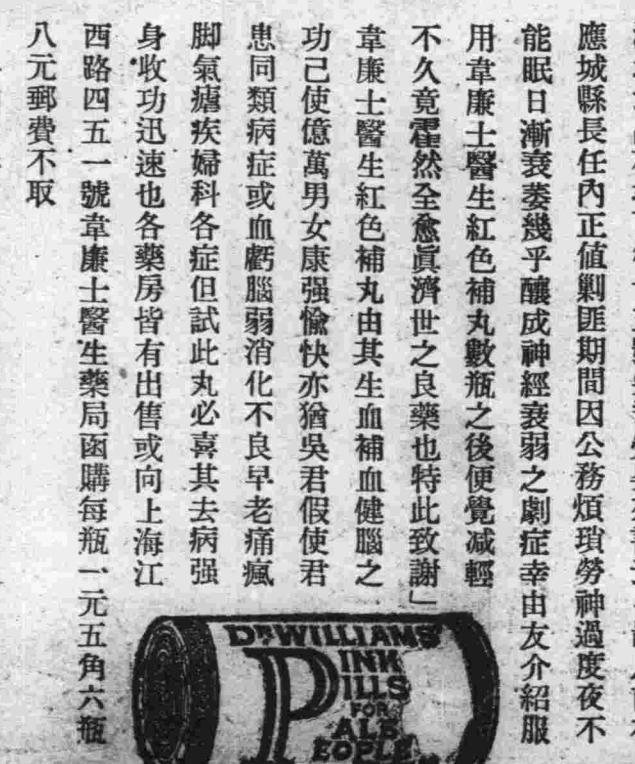 應城縣長任內正值剿匪期間因公務煩瑣勞神過度夜不
能眠日漸衰萎幾乎釀成神經衰弱之劇症幸由友介紹服
用韋廉士醫生紅色補丸數瓶之後便覺減輕
不久竟霍然全愈眞濟世之良藥也特此致謝」
韋廉士醫生紅色補丸由其生血補血健腦之
功己使億萬男女康强愉快亦猶吳君假使君
患同類病症或血虧腦弱消化不良早老痛瘋
脚氣瘧疾婦科各症但試此丸必喜其去病强
身收功迅速也各藥房皆有出售或向上海江
西路四五一號韋廉士醫生藥局函購每瓶一元五角六瓶
八元郵費不取
DR WILLIAMS'
PINK
PILLS
FOR
PALE
PEOPLE